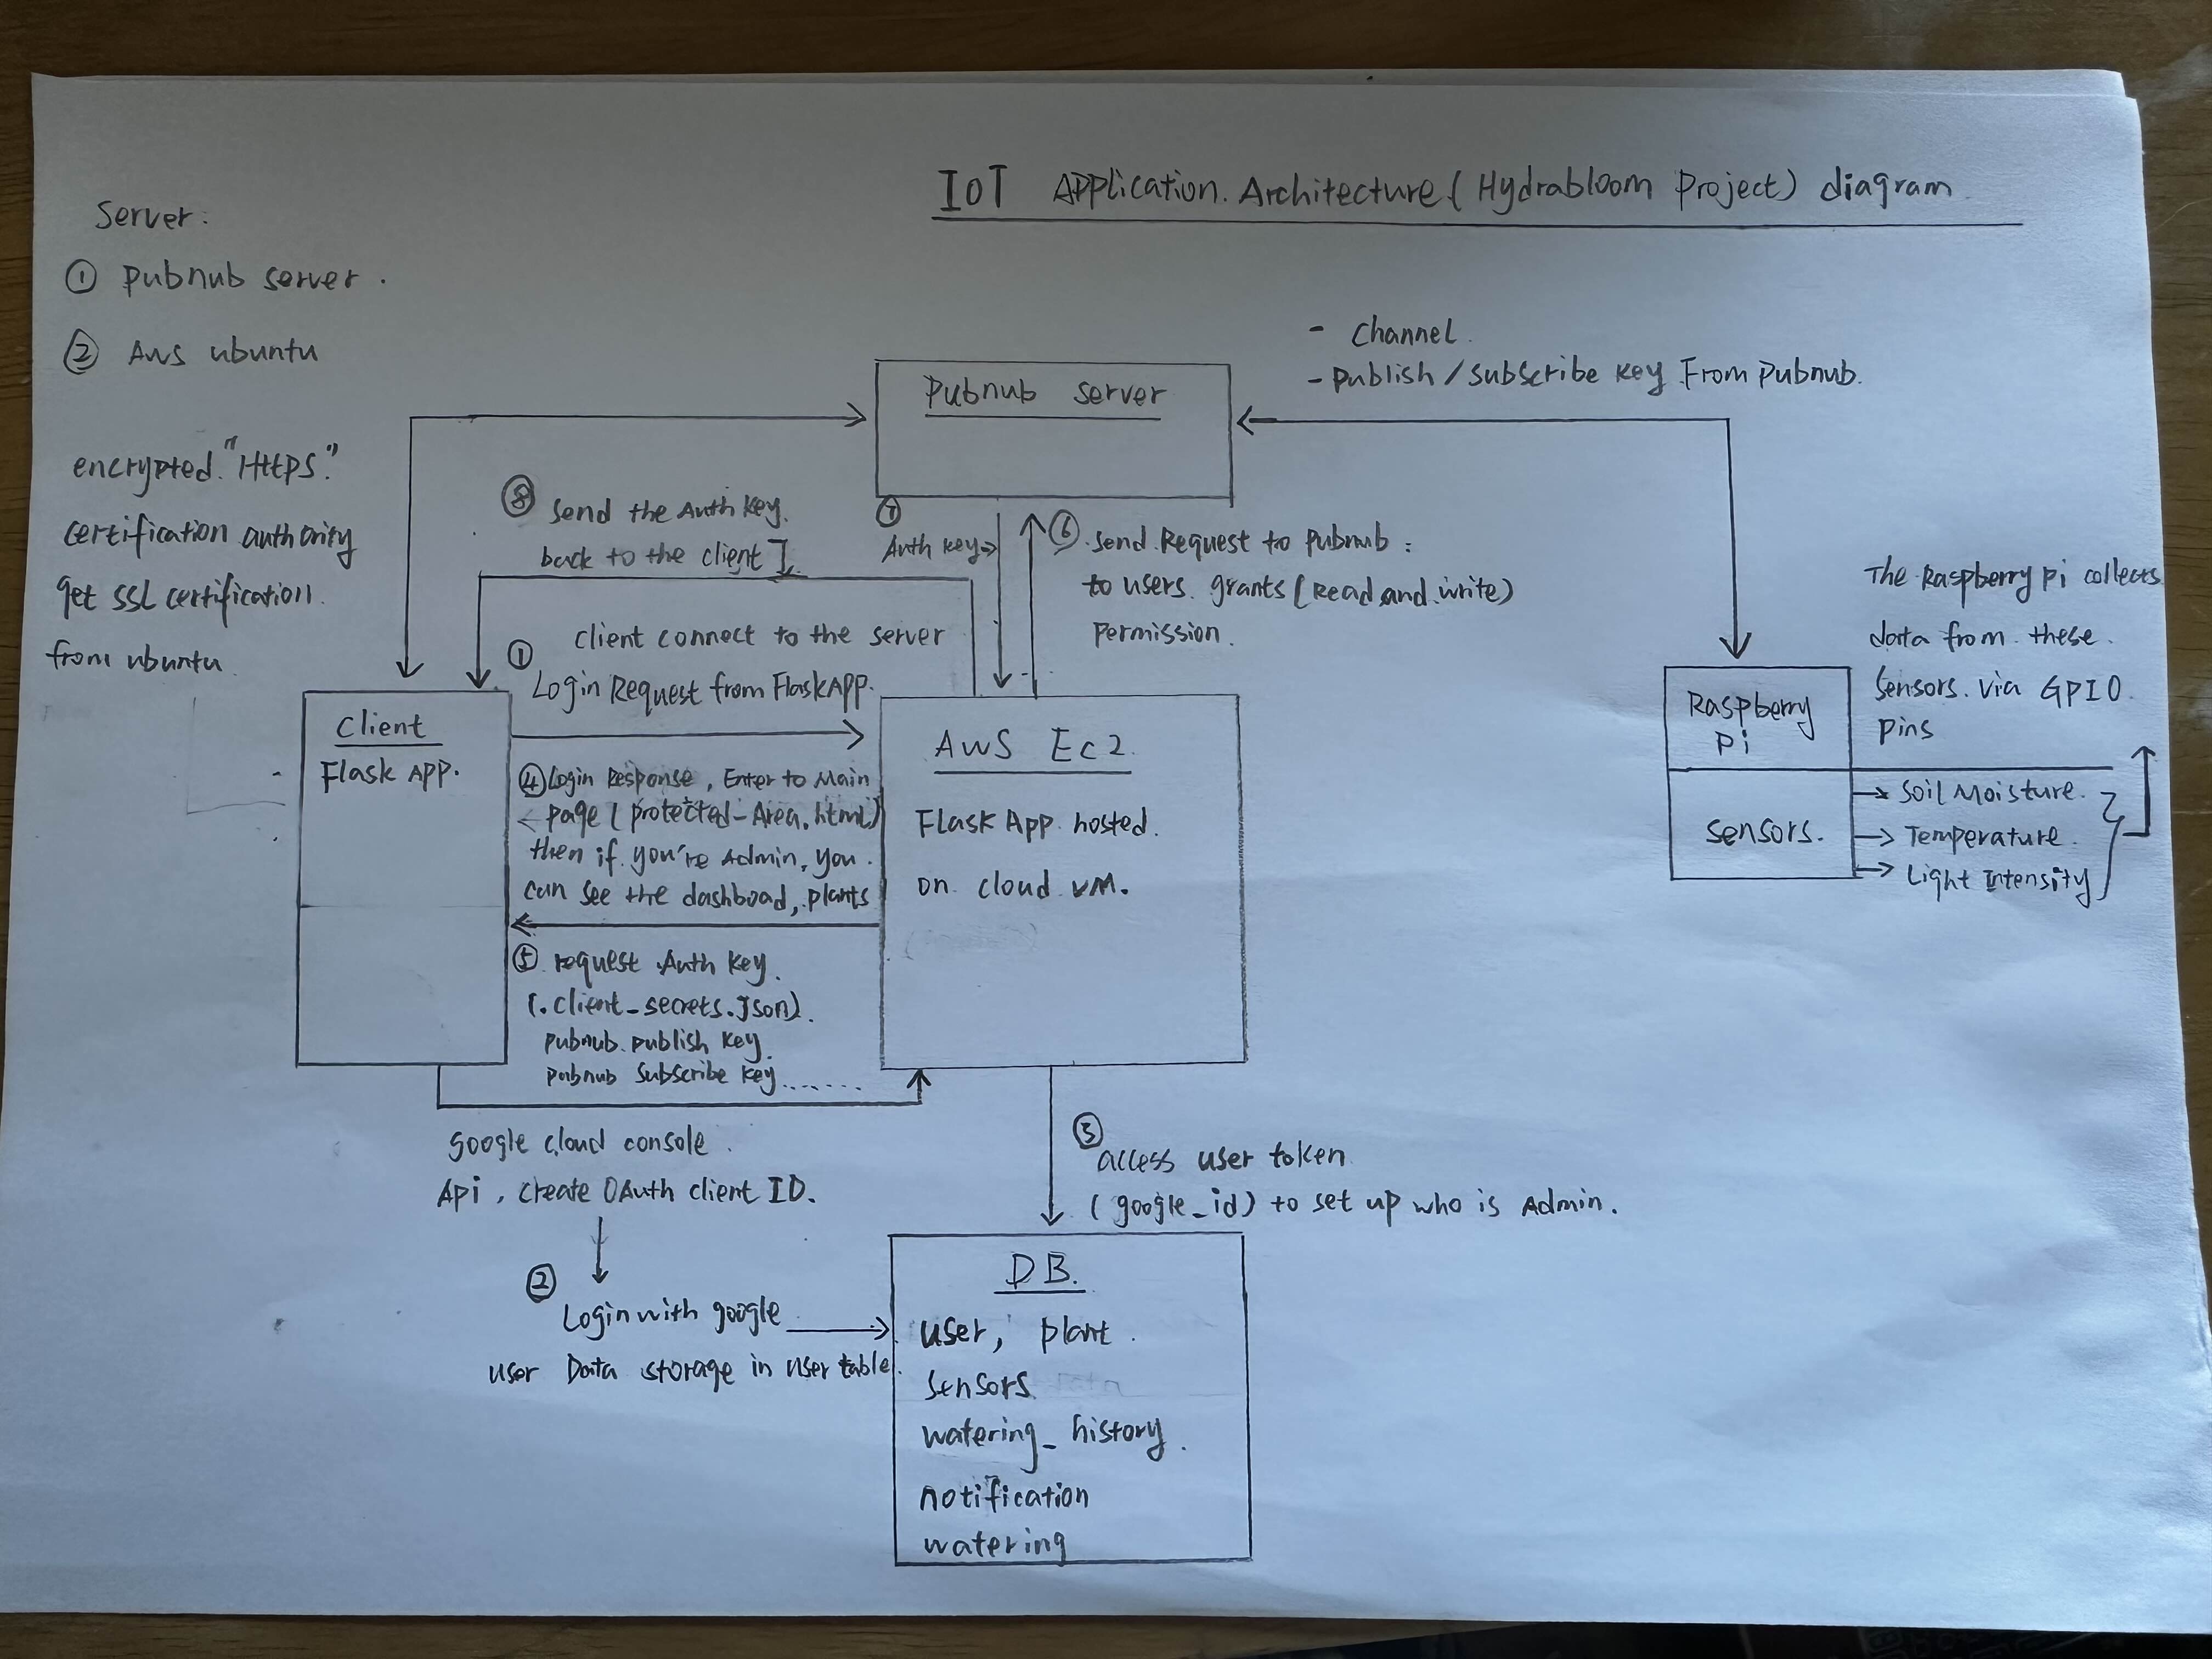 IoT Application.Architecture(Hydrabloom Project) diagram
Server:
① Pubnub server.
② Aws ubuntu
encrypted."Https."
certification authority
get SSL certification.
from ubuntu
- Channel.
- Publish/Subscribe key From Pubnub.
Pubnub server
⑧ Send the Auth key.
back to the client
⑦
Auth key
⑥ Send Request to Pubnub:
to users. grants (Read and write)
Permission.
① client connect to the server
Login Request from Flask APP.
Client
Flask APP.
④ Login Response, Enter to Main
page (protected-Area.html)
then if you're Admin, you
can see the dashboad, plants
⑤ request Auth key.
(.client_secrets.json).
pubnub.publish key.
pubnub Subscribe key.......
AWS Ec2.
Flask App hosted.
on cloud VM.
The Raspberry Pi collects
data from these
sensors. via GPIO
pins
Raspberry
Pi
Sensors.
Soil Moisture.
Temperature.
Light Intensity
google cloud console.
Api, create OAuth client ID.
② Login with google
user Data storage in user table.
③ access user token
(google_id) to set up who is Admin.
DB.
user, plant.
sensors
watering_history.
notification
watering